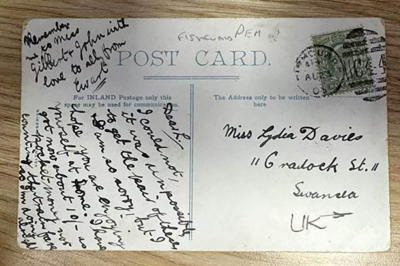 Remember
me to Miss
Gilbert & John with
love to all from
Ewart
FISHGUARD PEM
POST CARD.
For INLAND Postage only this
space may be used for communication.
The Address only to be written
here
Dear L.
I could not,
it was impossible
to get the pair of these
I'm so sorry! but I
hope you are enjoying
yourself at home. I have
got now about 10/- as
pocket money not
Miss Lydia Davies
"11 Cradock St."
Swansea
UK